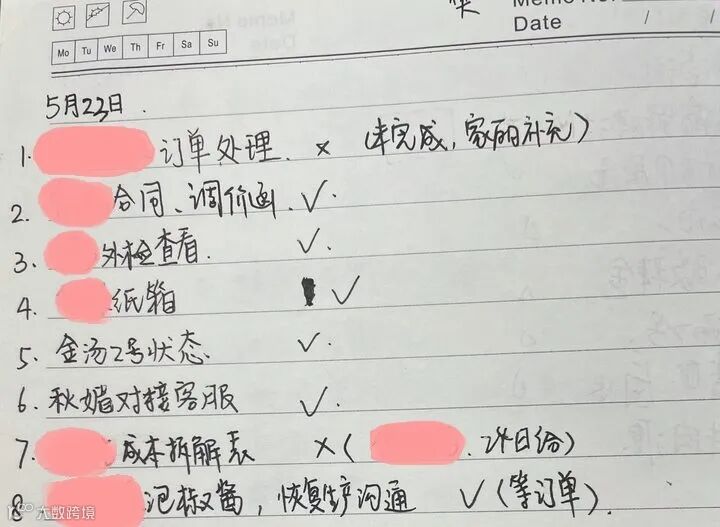 Memo No.
Mo Tu We Th Fr Sa Su
Date / /
5月23日.
1. 订单处理. × (未完成, 家丽补充)
2. 合同、调价函. ✓.
3. 外检查看. ✓.
4. 纸箱 ✓
5. 金汤2号状态. ✓.
6. 秋媚对接客服 ✓.
7. 成本拆解表 ×( . 24日给)
8 泡椒酱, 恢复生产沟通 ✓(等订单).
大数跨境